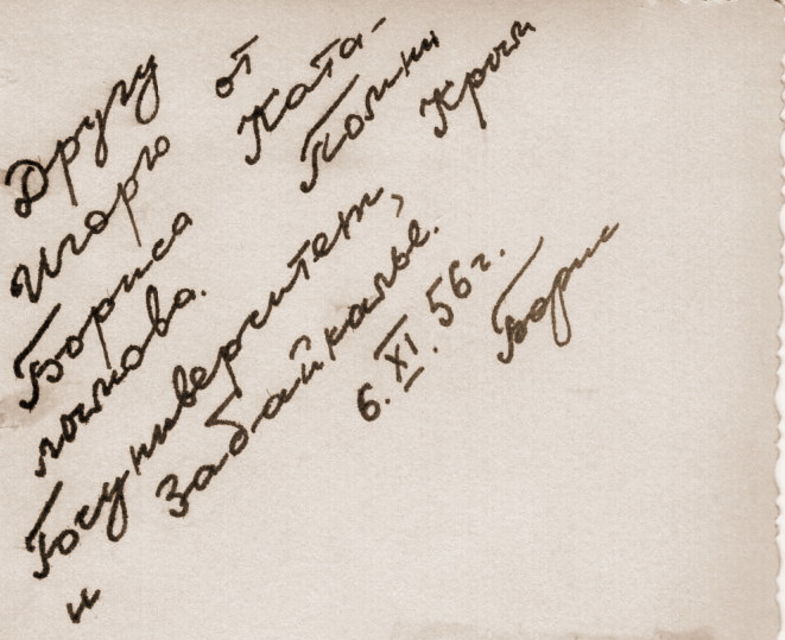 Другу
Игорю от
Бориса Ката-
лымова. Помни Крым
Госуниверситет,
и Забайкалье.
6.XI.56г.
Борис